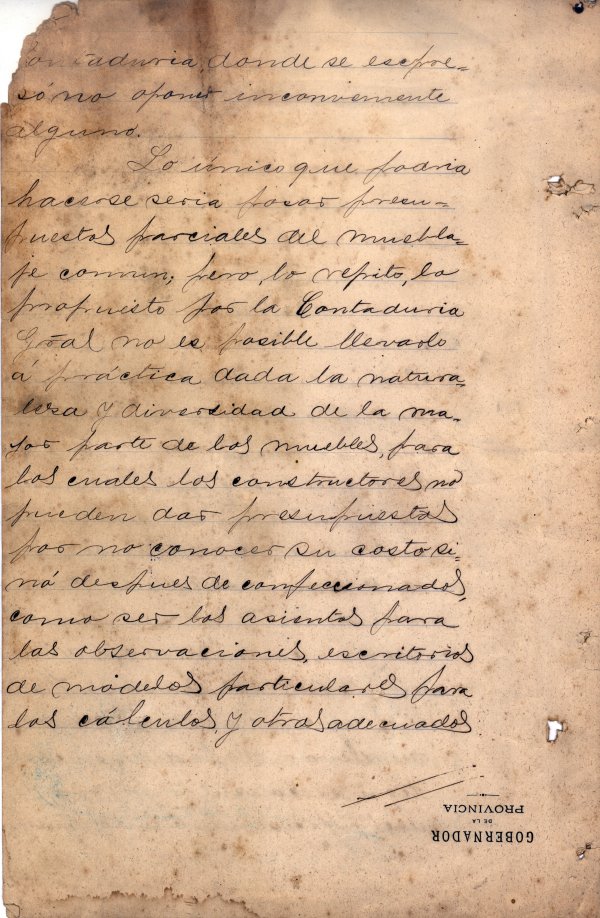 Contaduria, donde se espre-
só no oponer inconveniente
alguno.
Lo único que podria
hacerse seria pasar presu-
puestos parciales del muebla-
je comun; pero, lo repito, lo
propuesto por la Contaduria
Gral no es posible llevarlo
á práctica dada la natura-
leza y diversidad de la ma-
yor parte de los muebles, para
los cuales los constructores no
pueden dar presupuestos
por no conocer su costo si-
nó despues de confeccionados,
como ser los asientos para
las observaciones, escritorios
de modelos particulares para
los cálculos, y otros adecuados
GOBERNADOR
DE LA
PROVINCIA